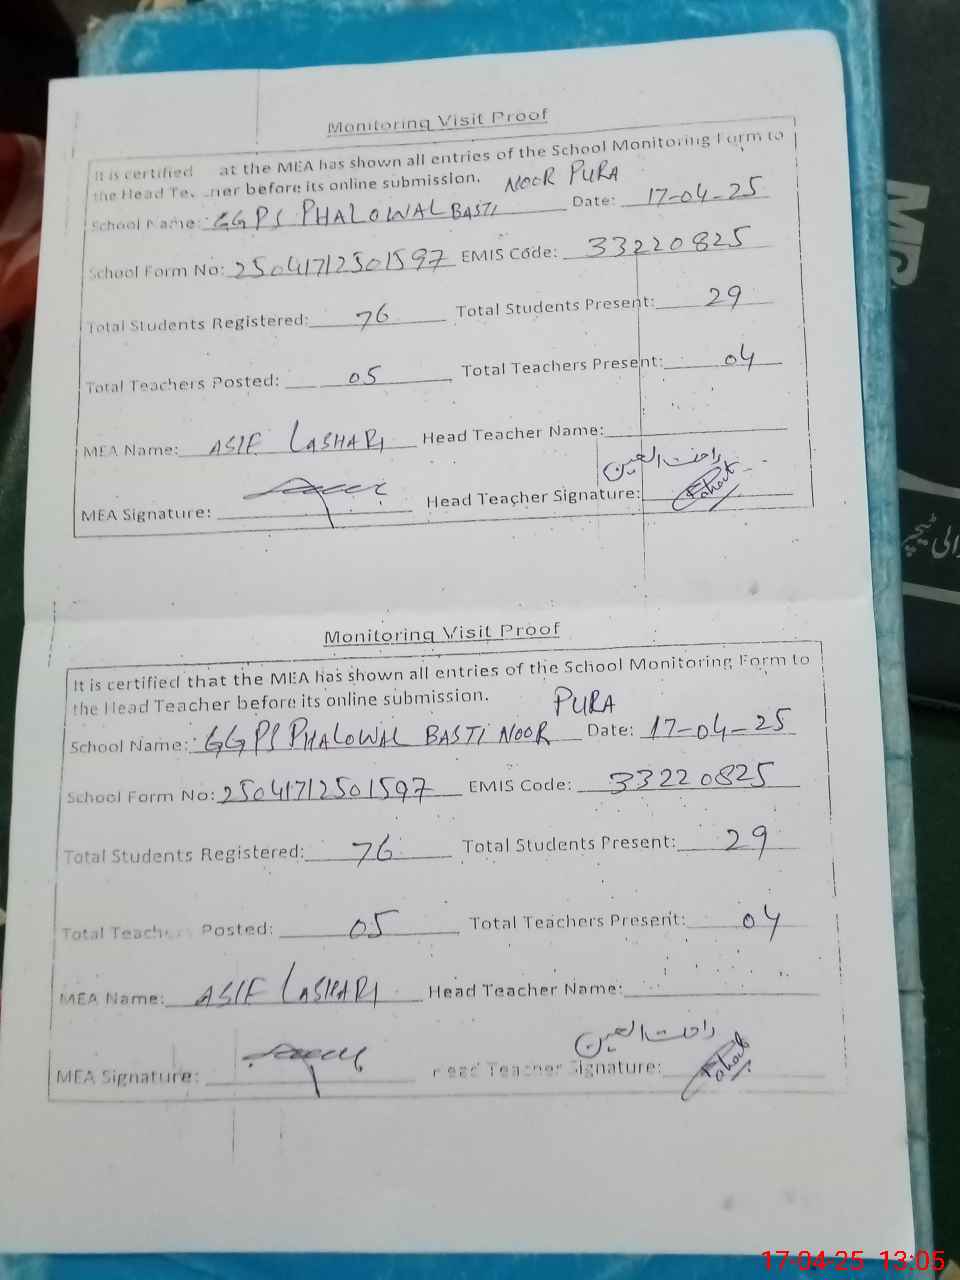 Monitoring Visit Proof
It is certified at the MEA has shown all entries of the School Monitoring Form to
the Head Te ner before its online submission. NOOR PURA
School Name: GGPS PHALOWAL BASTI Date: 17-04-25
School Form No: 25041712501597 EMIS Code: 33220825
Total Students Registered: 76 Total Students Present: 29
Total Teachers Posted: 05 Total Teachers Present: 04
MEA Name: ASIF LASHARI Head Teacher Name:
راحت العین
MEA Signature: Head Teacher Signature: Rahat
Monitoring Visit Proof
It is certified that the MEA has shown all entries of the School Monitoring Form to
the Head Teacher before its online submission. PURA
School Name: GGPS PHALOWAL BASTI NOOR Date: 17-04-25
School Form No: 25041712501597 EMIS Code: 33220825
Total Students Registered: 76 Total Students Present: 29
Total Teachers Posted: 05 Total Teachers Present: 04
MEA Name: ASIF LASHARI Head Teacher Name:
راحت العین
MEA Signature: Head Teacher Signature: Rahat
17-04-25 13:05